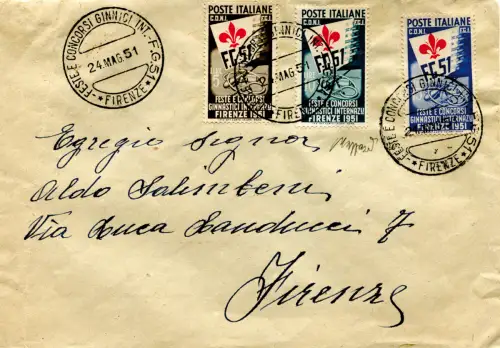 FESTE E CONCORSI GINNICI INT. F.G.51
24.MAG.51
FIRENZE
POSTE ITALIANE
C.O.N.I. F.G.I.
F.G.51
FESTE E CONCORSI
GINNASTICI INTERNAZ.LI
FIRENZE 1951
24.MAG.51
POSTE ITALIANE
C.O.N.I. F.G.I.
F.G.51
FESTE E CONCORSI
GINNASTICI INTERNAZ.LI
FIRENZE 1951
POSTE ITALIANE
C.O.N.I. F.G.I.
F.G.51
FESTE E CONCORSI
GINNASTICI INTERNAZ.LI
FIRENZE 1951
FESTE E CONCORSI GINNICI INT. F.G.51
FIRENZE
Egregio Signor
Aldo Salimbeni
Via Luca Landucci 7
Firenze